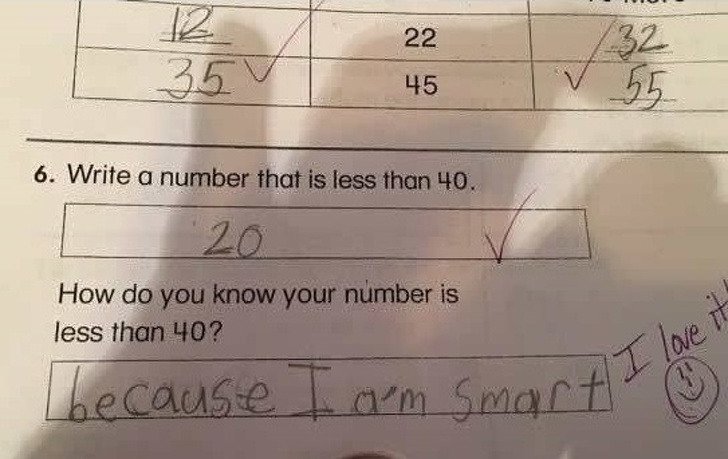 12 22 32
35 45 55
6. Write a number that is less than 40.
20
How do you know your number is
less than 40?
because I am smart
I love it!